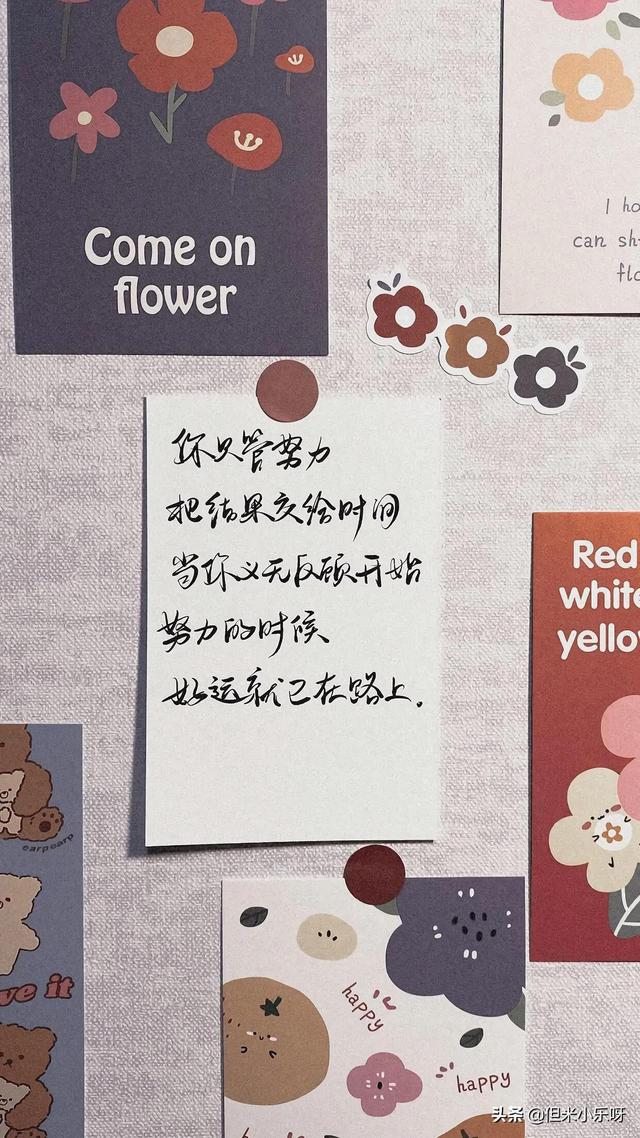 Come on
flower
I ho
can sh
flo
你只管努力
把结果交给时间
当你义无反顾开始
努力的时候
好运就已在路上。
Red
white
yello
earpearp
ve it
happy
happy
头条 @但米小乐呀